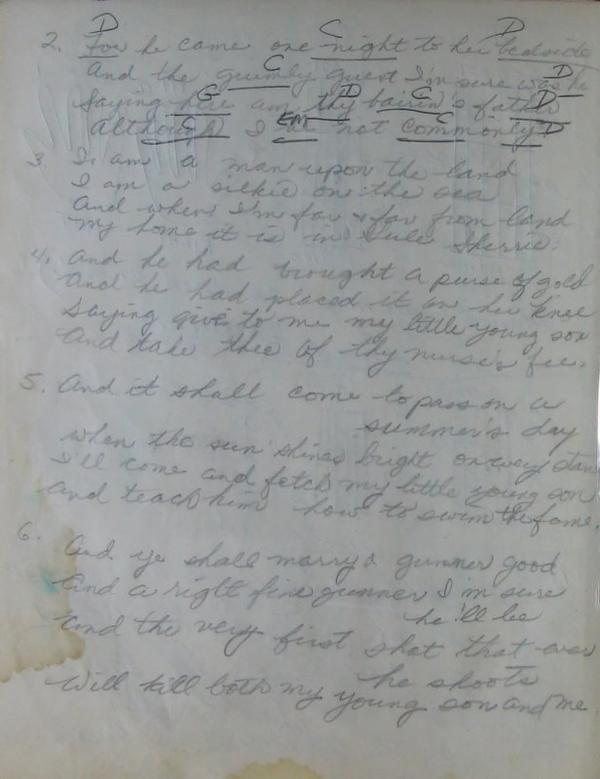 D C D
2. For he came one night to her bedside
C D
And the grumly guest I'm sure was he
G D C D
Saying here am I thy bairn's father
C Em C D
Although I be not commonly
3 I am a man upon the land
I am a silkie on the sea
And when I'm far & far from land
My home it is in Sule Skerrie.
4. And he had brought a purse of gold
And he had placed it on her knee
Saying give to me my little young son
And take thee of thy nurse's fee.
5. And it shall come to pass on a
summer's day
when the sun shines bright on evey stane
I'll come and fetch my little young son
and teach him how to swim the fome.
6. And ye shall marry a gunner good
And a right fine gunner I'm sure
he'll be
And the very first shot that ever
he shoots
Will kill both my young son and me